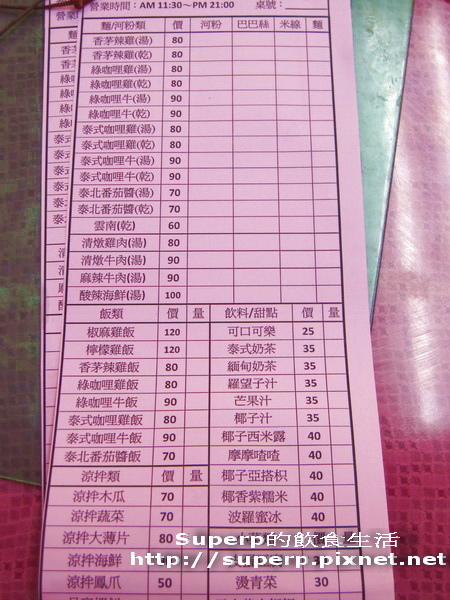 營業時間：AM 11:30～PM 21:00 桌號：
麵/河粉類 價 河粉 巴巴絲 米線 麵
香茅辣雞(湯) 80
香茅辣雞(乾) 80
綠咖哩雞(湯) 80
綠咖哩雞(乾) 80
綠咖哩牛(湯) 90
綠咖哩牛(乾) 90
泰式咖哩雞(湯) 80
泰式咖哩雞(乾) 80
泰式咖哩牛(湯) 90
泰式咖哩牛(乾) 90
泰北番茄醬(湯) 70
泰北番茄醬(乾) 70
雲南(乾) 60
清燉雞肉(湯) 80
清燉牛肉(湯) 90
麻辣牛肉(湯) 90
酸辣海鮮(湯) 100
飯類 價 量 飲料/甜點 價 量
椒麻雞飯 120 可口可樂 25
檸檬雞飯 120 泰式奶茶 35
香茅辣雞飯 80 緬甸奶茶 35
綠咖哩雞飯 80 羅望子汁 35
綠咖哩牛飯 90 芒果汁 35
泰式咖哩雞飯 80 椰子汁 35
泰式咖哩牛飯 90 椰子西米露 40
泰北番茄醬飯 70 摩摩喳喳 40
涼拌類 價 量 椰子亞搭枳 40
涼拌木瓜 70 椰香紫糯米 40
涼拌蔬菜 70 波羅蜜冰 40
涼拌大薄片 80
Superp的飲食生活
涼拌海鮮
http://superp.pixnet.net
涼拌鳳爪 50 燙青菜 30